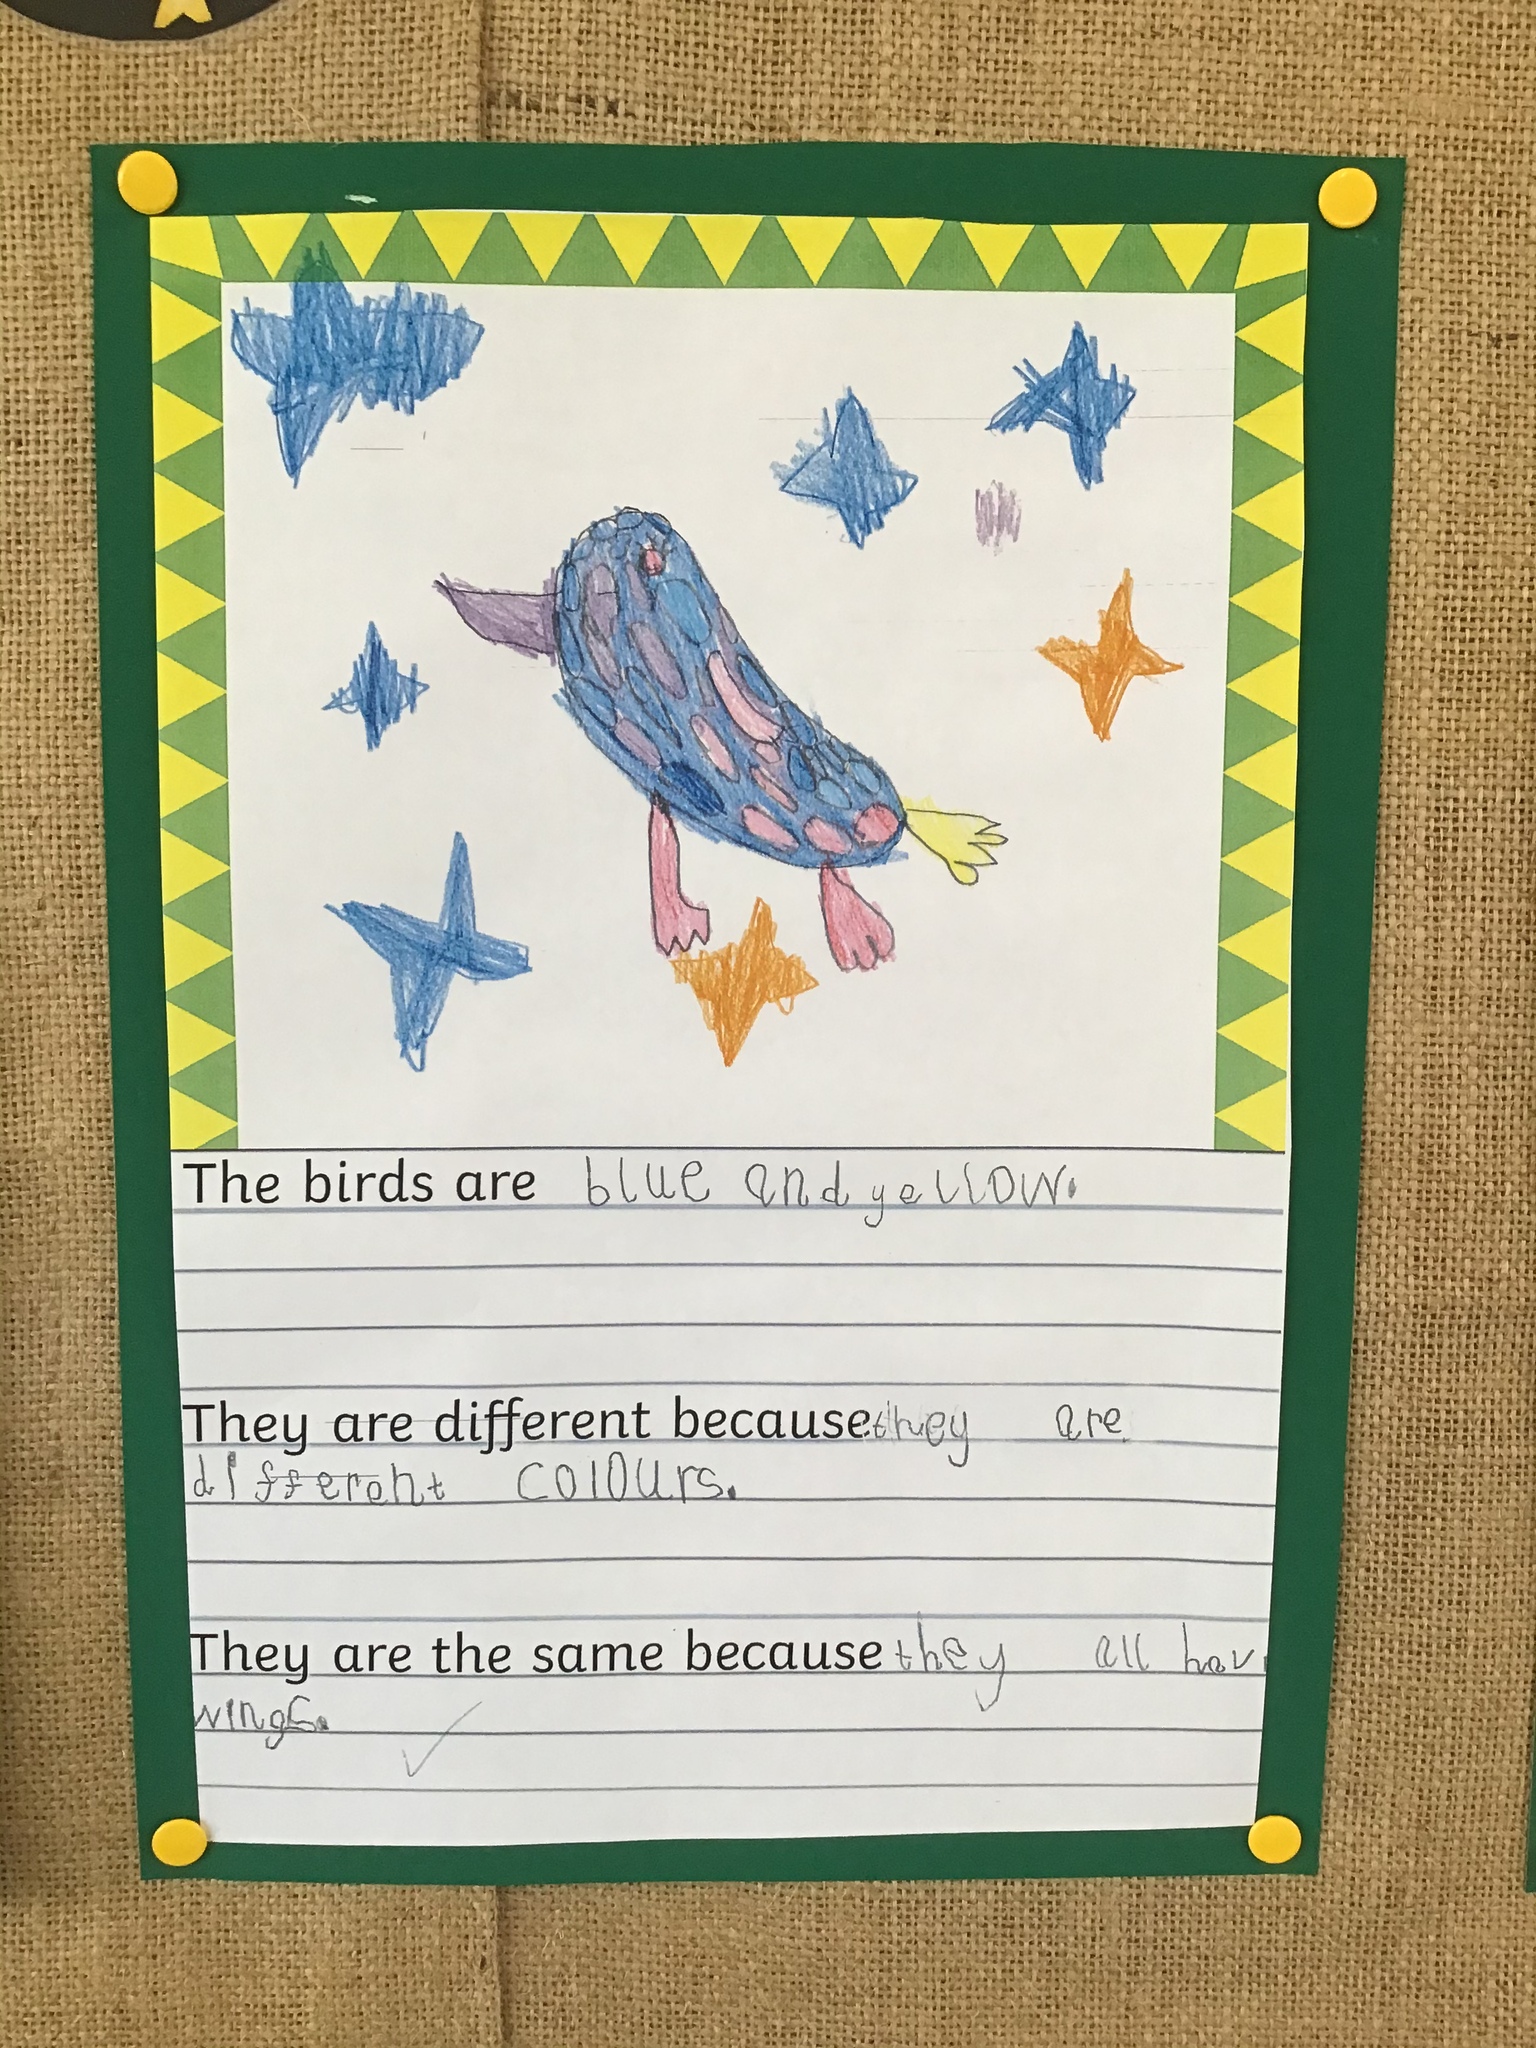 The birds are blue and yellow.
They are different because they are
different colours.
They are the same because they all hav
wings.